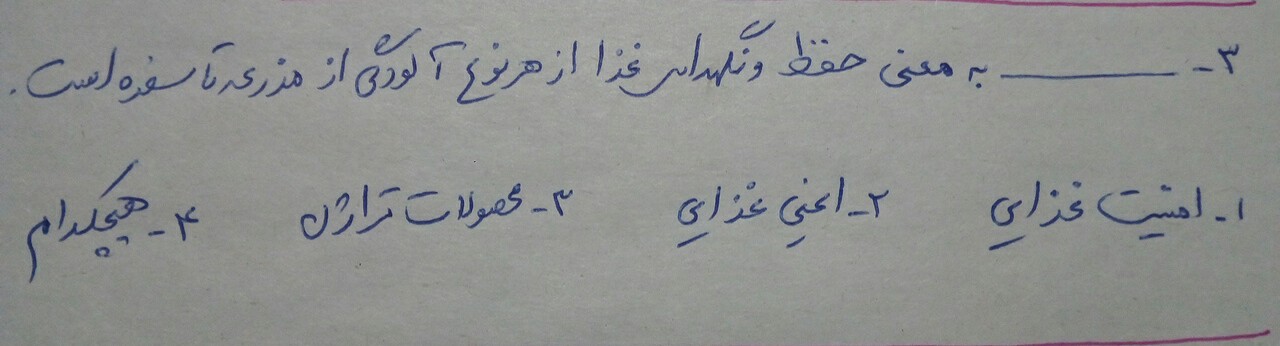 ۳- ــــــــ به معنی حفظ و نگهداری غذا از هر نوع آلودگی از مزرعه تا سفره است.
۱- امنیت غذایی ۲- ایمنی غذایی ۳- محصولات تراژن ۴- هیچکدام